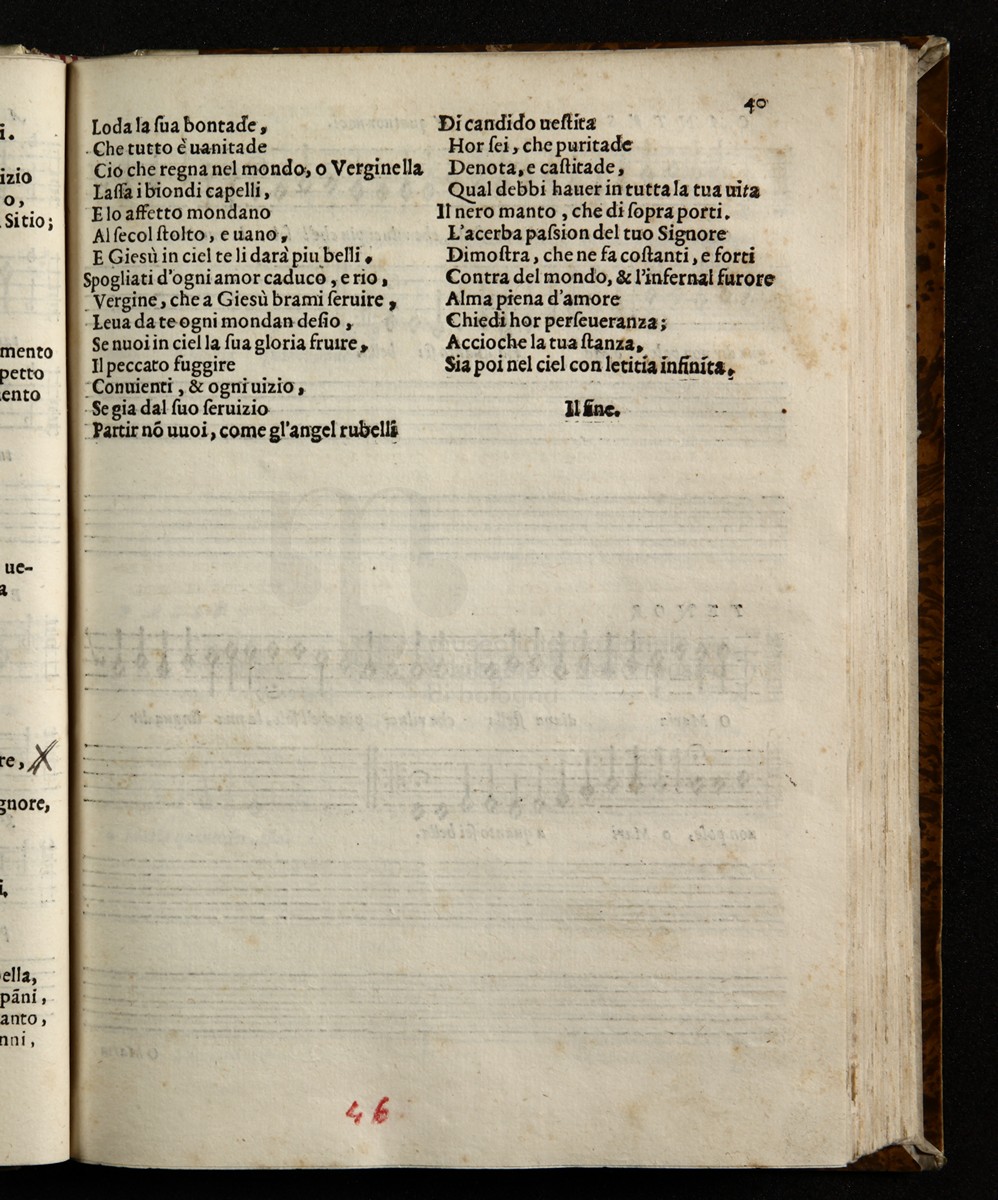 i.
izio
o,
Sitio;
mento
petto
ento
ue-
a
re,
gnore,
i,
ella,
pāni,
anto,
nni,
40
Loda la ſua bontade,
Che tutto è uanitade
Cio che regna nel mondo, o Verginella
Laſſa i biondi capelli,
E lo affetto mondano
Al ſecol ſtolto, e uano,
E Giesù in ciel te li darà piu belli.
Spogliati d'ogni amor caduco, e rio,
Vergine, che a Giesù brami ſeruire,
Leua da te ogni mondan deſio,
Se nuoi in ciel la ſua gloria fruire,
Il peccato fuggire
Conuienti, & ogni uizio,
Se gia dal ſuo ſeruizio
Partir nō uuoi, come gl'angel rubelli
Di candido ueſtita
Hor ſei, che puritade
Denota, e caſtitade,
Qual debbi hauer in tutta la tua uita
Il nero manto, che di ſopra porti.
L'acerba paſsion del tuo Signore
Dimoſtra, che ne fa coſtanti, e forti
Contra del mondo, & l'infernal furore
Alma piena d'amore
Chiedi hor perſeueranza;
Accioche la tua ſtanza,
Sia poi nel ciel con letitia infinita.
Il fine.
46